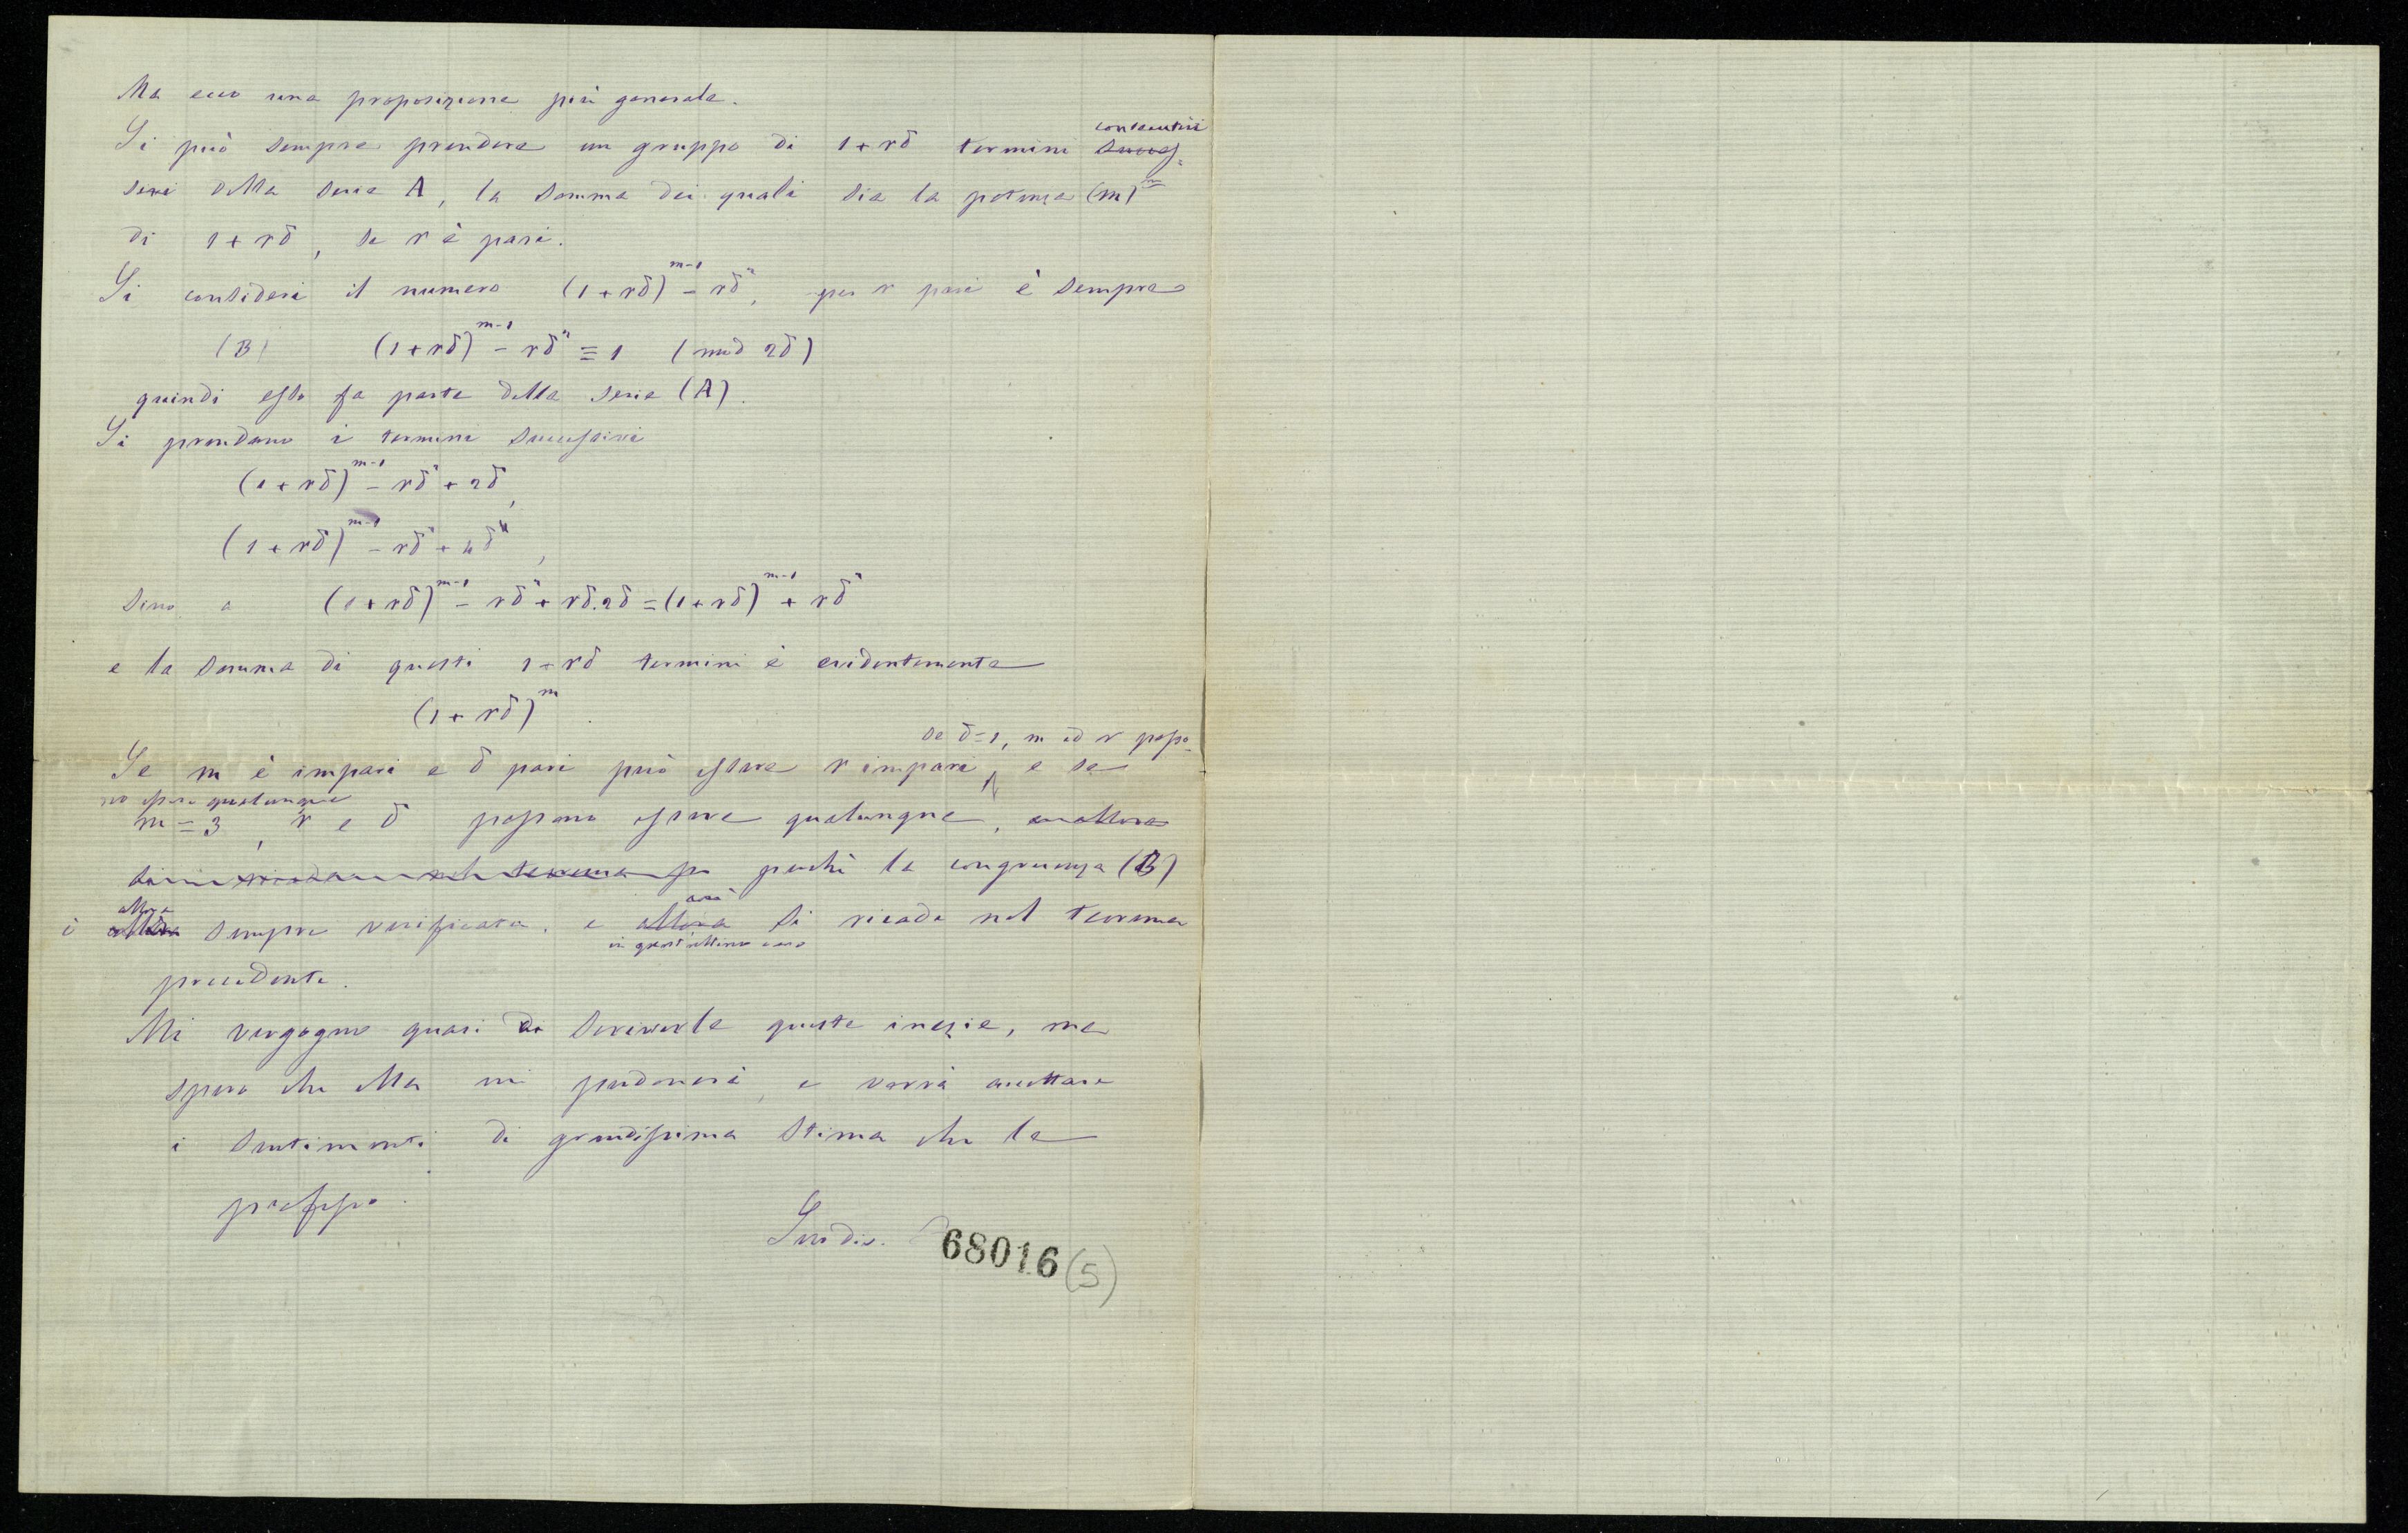 Ma ecco una proposizione più generale.
Si può sempre prendere un gruppo di 1+rδ termini consecutivi succes-
sivi della serie A, la somma dei quali sia la potenza (m)^ma
di 1+rδ, se r è pari.
Si consideri il numero (1+rδ)^{m-1} - rδ², per r pari è sempre
(B) (1+rδ)^{m-1} - rδ² ≡ 1 (mod 2δ)
quindi esso fa parte della serie (A).
Si prendano i termini successivi
(1+rδ)^{m-1} - rδ² + 2δ,
(1+rδ)^{m-1} - rδ² + 4δ,
sino a (1+rδ)^{m-1} - rδ² + rδ.2δ = (1+rδ)^{m-1} + rδ²
e la somma di questi 1+rδ termini è evidentemente
(1+rδ)^m.
se δ=1, m ed r posso-
Se m è impari e δ pari può essere r impari, e se
no essere qualunque
m=3, r e δ possono essere qualunque,
perchè la congruenza (B)
è allora sempre verificata. e allora si ricade nel teorema
in quest'ultimo caso
precedente.
Mi vergogno quasi di scriverle queste inezie, ma
spero che Ella mi perdonerà, e vorrà accettare
i sentimenti di grandissima stima che la
professo.
Suo dev.
68016 (5)